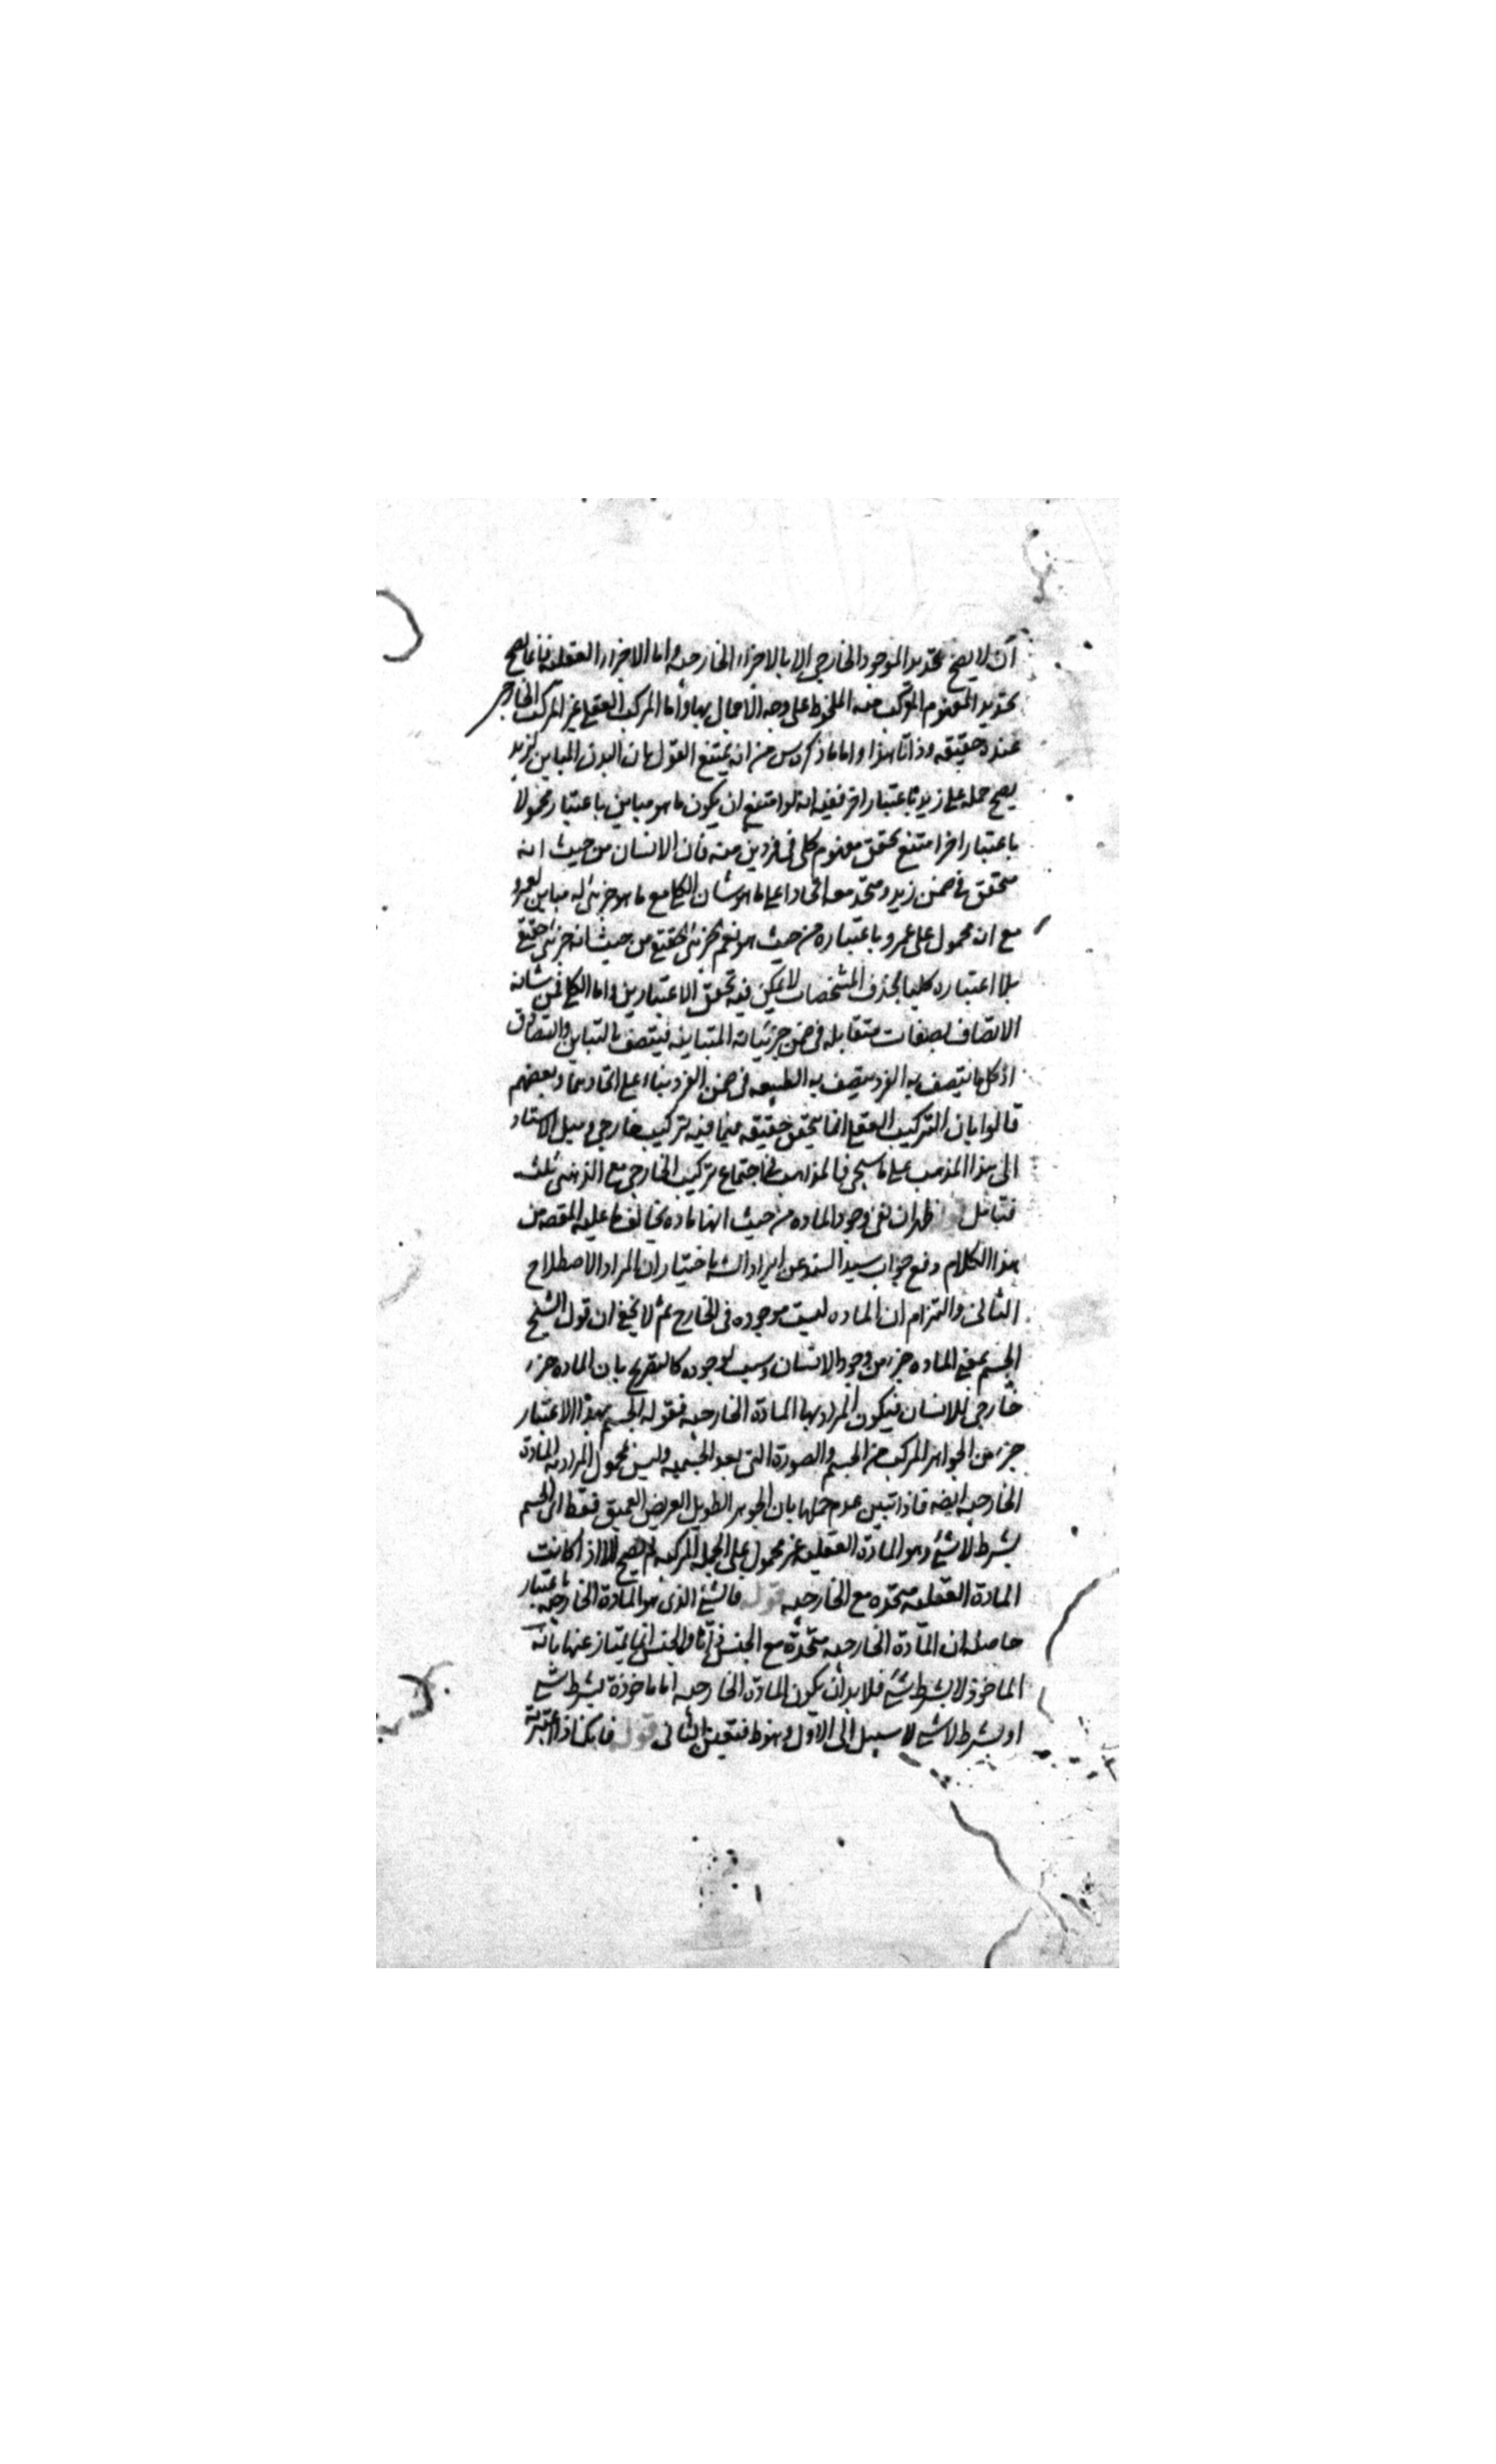 ان لا يصح تحديد الموجود الخارجي الا بالاجزاء الخارجيه واما الاجزاء العقليه فانما يصح
تحديد المفهوم المركب منه الملحوظ على وجه الاجمال بها واما المركب العقلي غير المركب الخارجي
عنده حقيقه وذاتا هذا واما ما ذكره س من انه يمتنع القول بان البدن المباين لزيد
يصح حمله على زيد باعتبار اخر ففيه انه لو امتنع ان يكون ما هو مباين باعتبار محمولا
باعتبار اخر امتنع تحقق مفهوم كلي في فردين منه فان الانسان من حيث انه
متحقق في ضمن زيد ومتحد معه اتحادا على ما هو شان الكلي مع ما هو جزئي له مباين لعمرو
مع انه محمول على عمرو باعتباره من حيث هو نعم الجزئي الحقيقي من حيث انه جزئي حقيقي
بلا اعتباره كليا بحذف المشخصات لا يمكن فيه تحقق الاعتبارين واما الكلي فمن شانه
الاتصاف بصفات متقابله في ضمن جزئياته المتباينه فيتصف بالتباين والتصادق
اذ كل ما يتصف به الفرد يتصف به الطبيعه في ضمن الفرد بناء على اتحادهما وبعضهم
قالوا بان التركيب العقلي انما يتحقق حقيقه فيما فيه تركيب خارجي وميل الاستاد
الى هذا المذهب على ما سيجئ فالمذاهب في اجتماع تركيب الخارجي مع الذهني ثلث
فتامل قوله ظهر ان نفي وجود الماده من حيث انها ماده يخالف ما عليه المقصد من
هذا الكلام دفع جواب سيد السند عن ايراد الش باختيار ان المراد الاصطلاح
الثاني والتزام ان الماده ليست موجوده في الخارج ثم لا يخفى ان قول الشيخ
الجسم بمعنى الماده جزء من وجود الانسان وسبب لوجوده كالتصريح بان الماده جزء
خارجي للانسان فيكون المراد بها المادة الخارجيه فقوله الجسم بهذا الاعتبار
جزء من الجواهر المركب من الجسم والصورة التي بعد الجسميه وليس بمحمول المراد به المادة
الخارجيه ايضه فاذا تبين عدم حملها بان الجوهر الطويل العريض العميق فقط اى الجسم
بشرط لا شئ وهو المادة العقليه غير محمول على الجمله المركبه لم يصح الا اذا كانت
المادة العقليه متحده مع الخارجيه قوله فالشئ الذى هو المادة الخارجيه باعتبار
حاصله ان المادة الخارجيه متحدة مع الجنس ذاتا والجنس انما يمتاز عنها بانه
الماخوذ لا بشرط شئ فلا بد ان يكون المادة الخارجيه اما ماخوذة بشرط شئ
او بشرط لا شئ لا سبيل الى الاول وهو ظ فتعين الثاني قوله فانك اذا اعتبرته